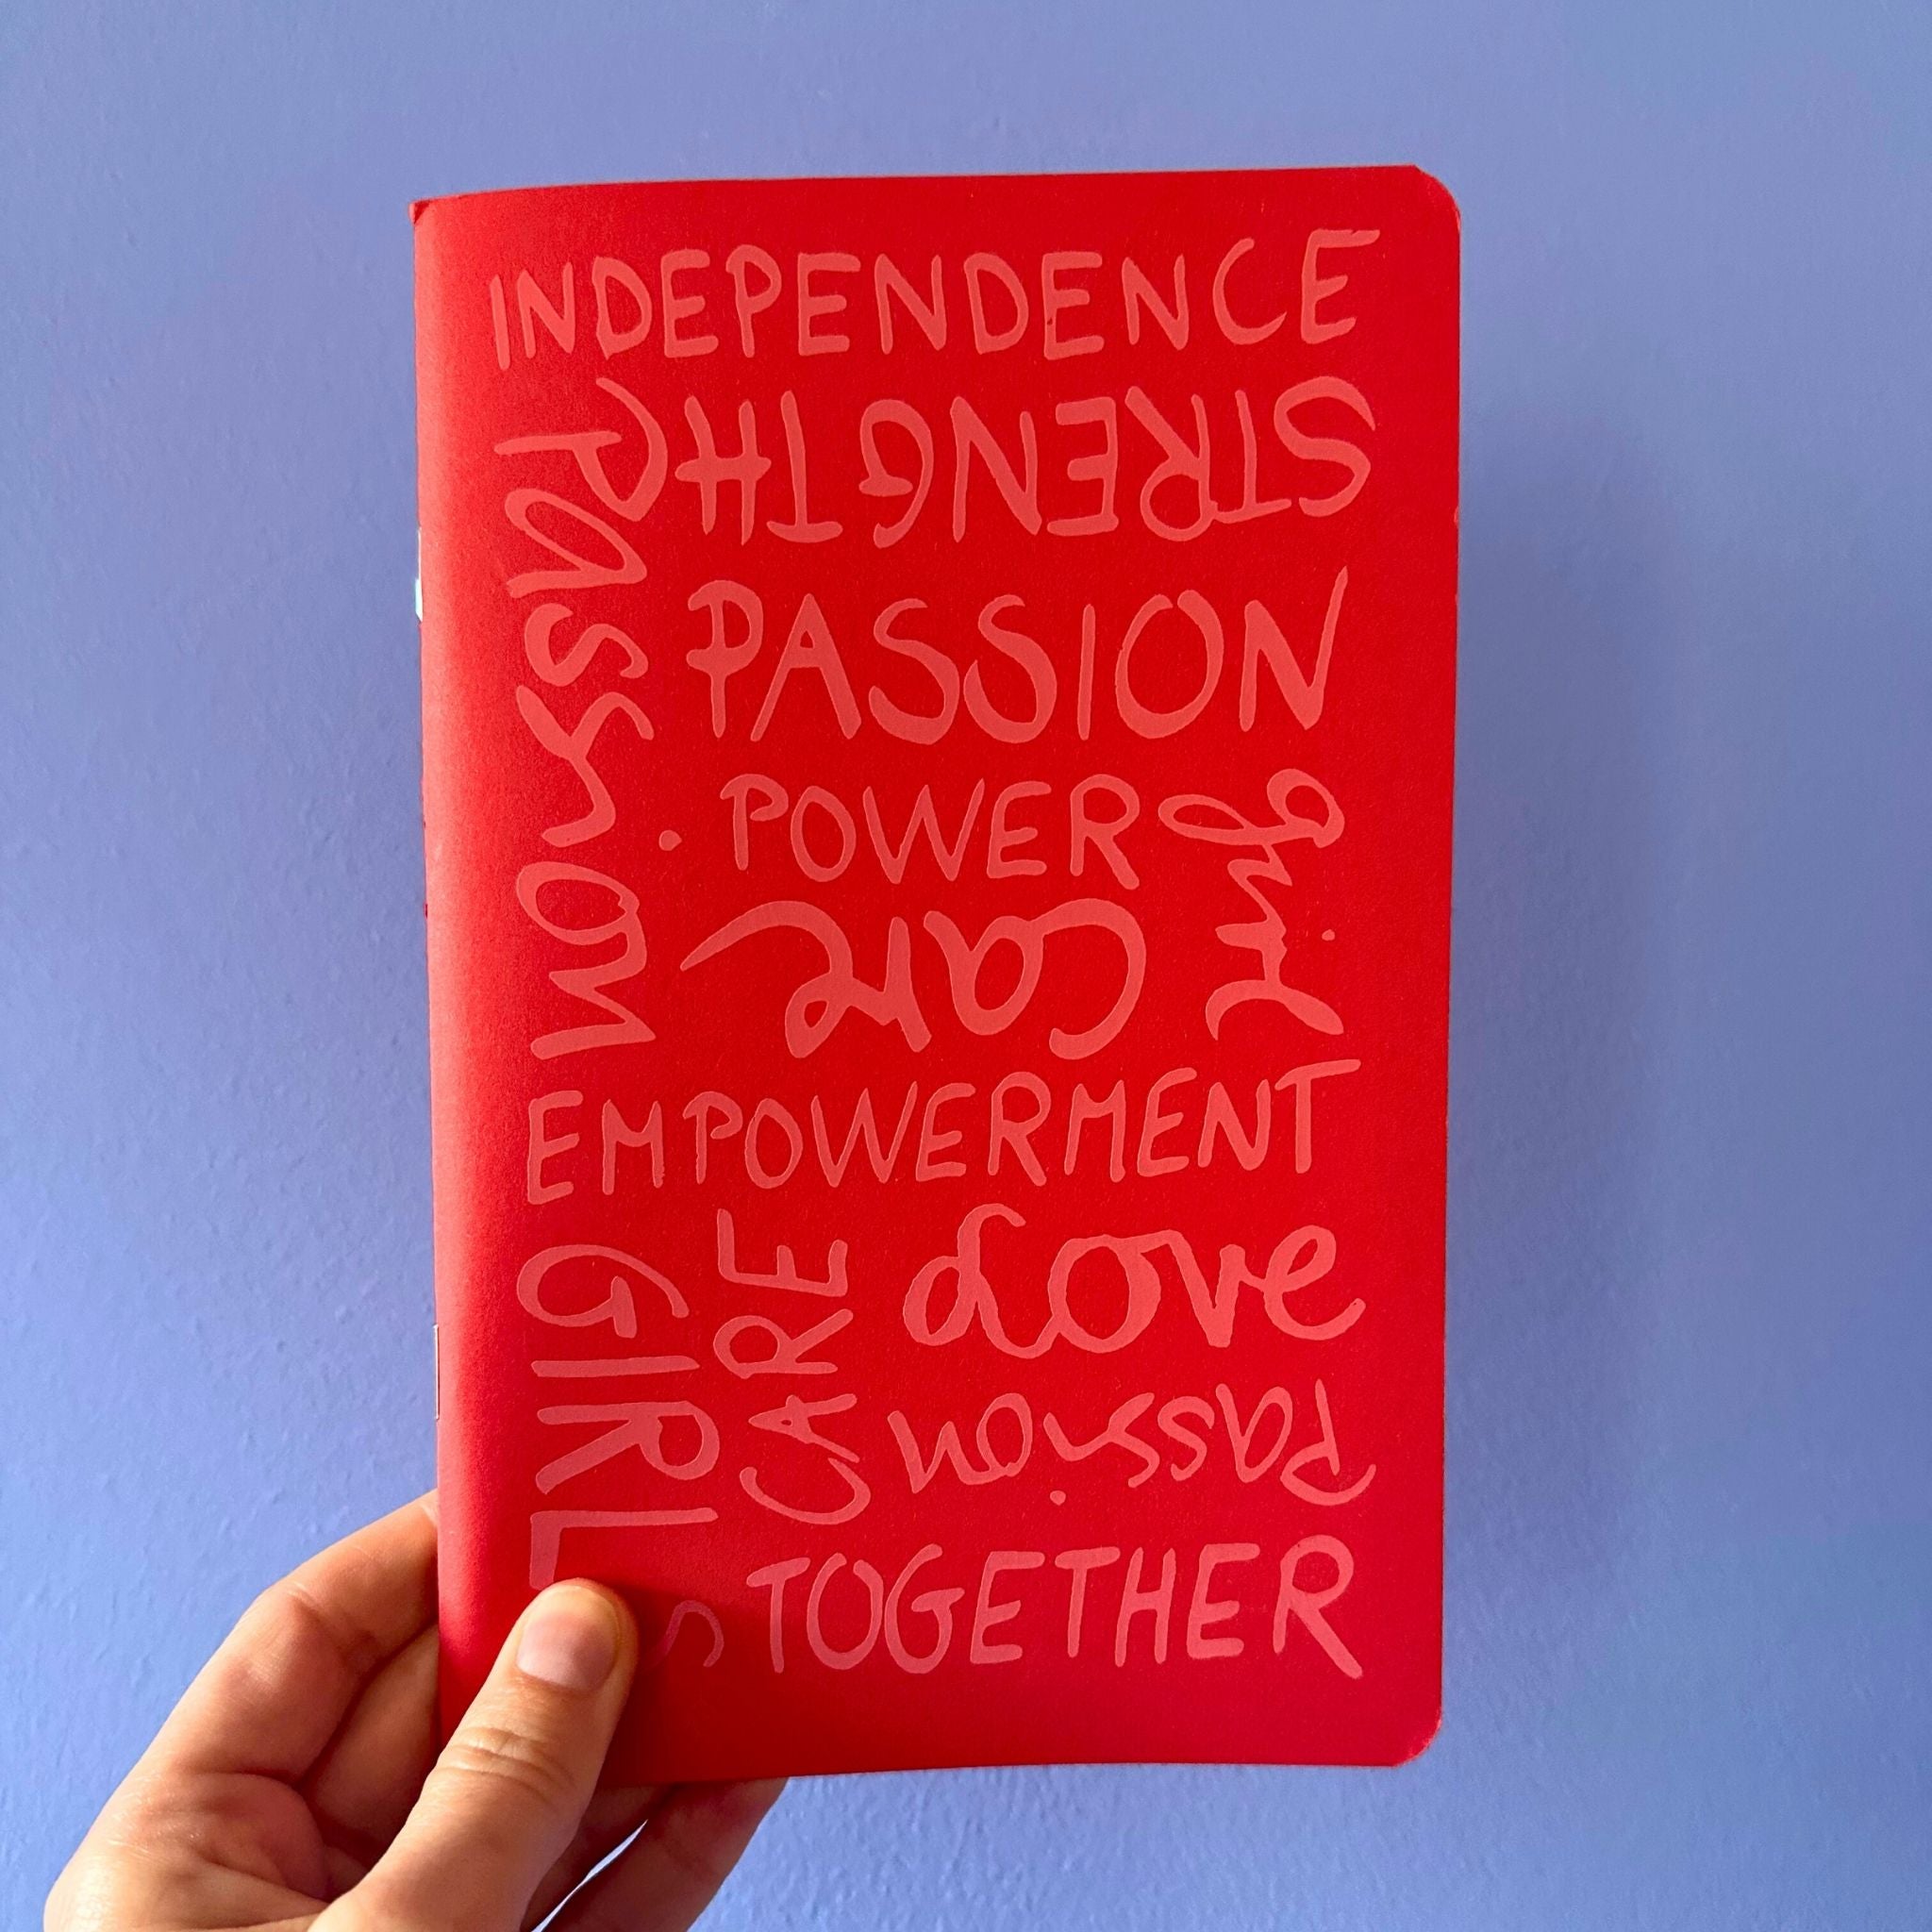 INDEPENDENCE
Passion
STRENGTH
PASSION
POWER
girl
Care
EMPOWERMENT
GIRLS
CARE
Love
Passion
TOGETHER